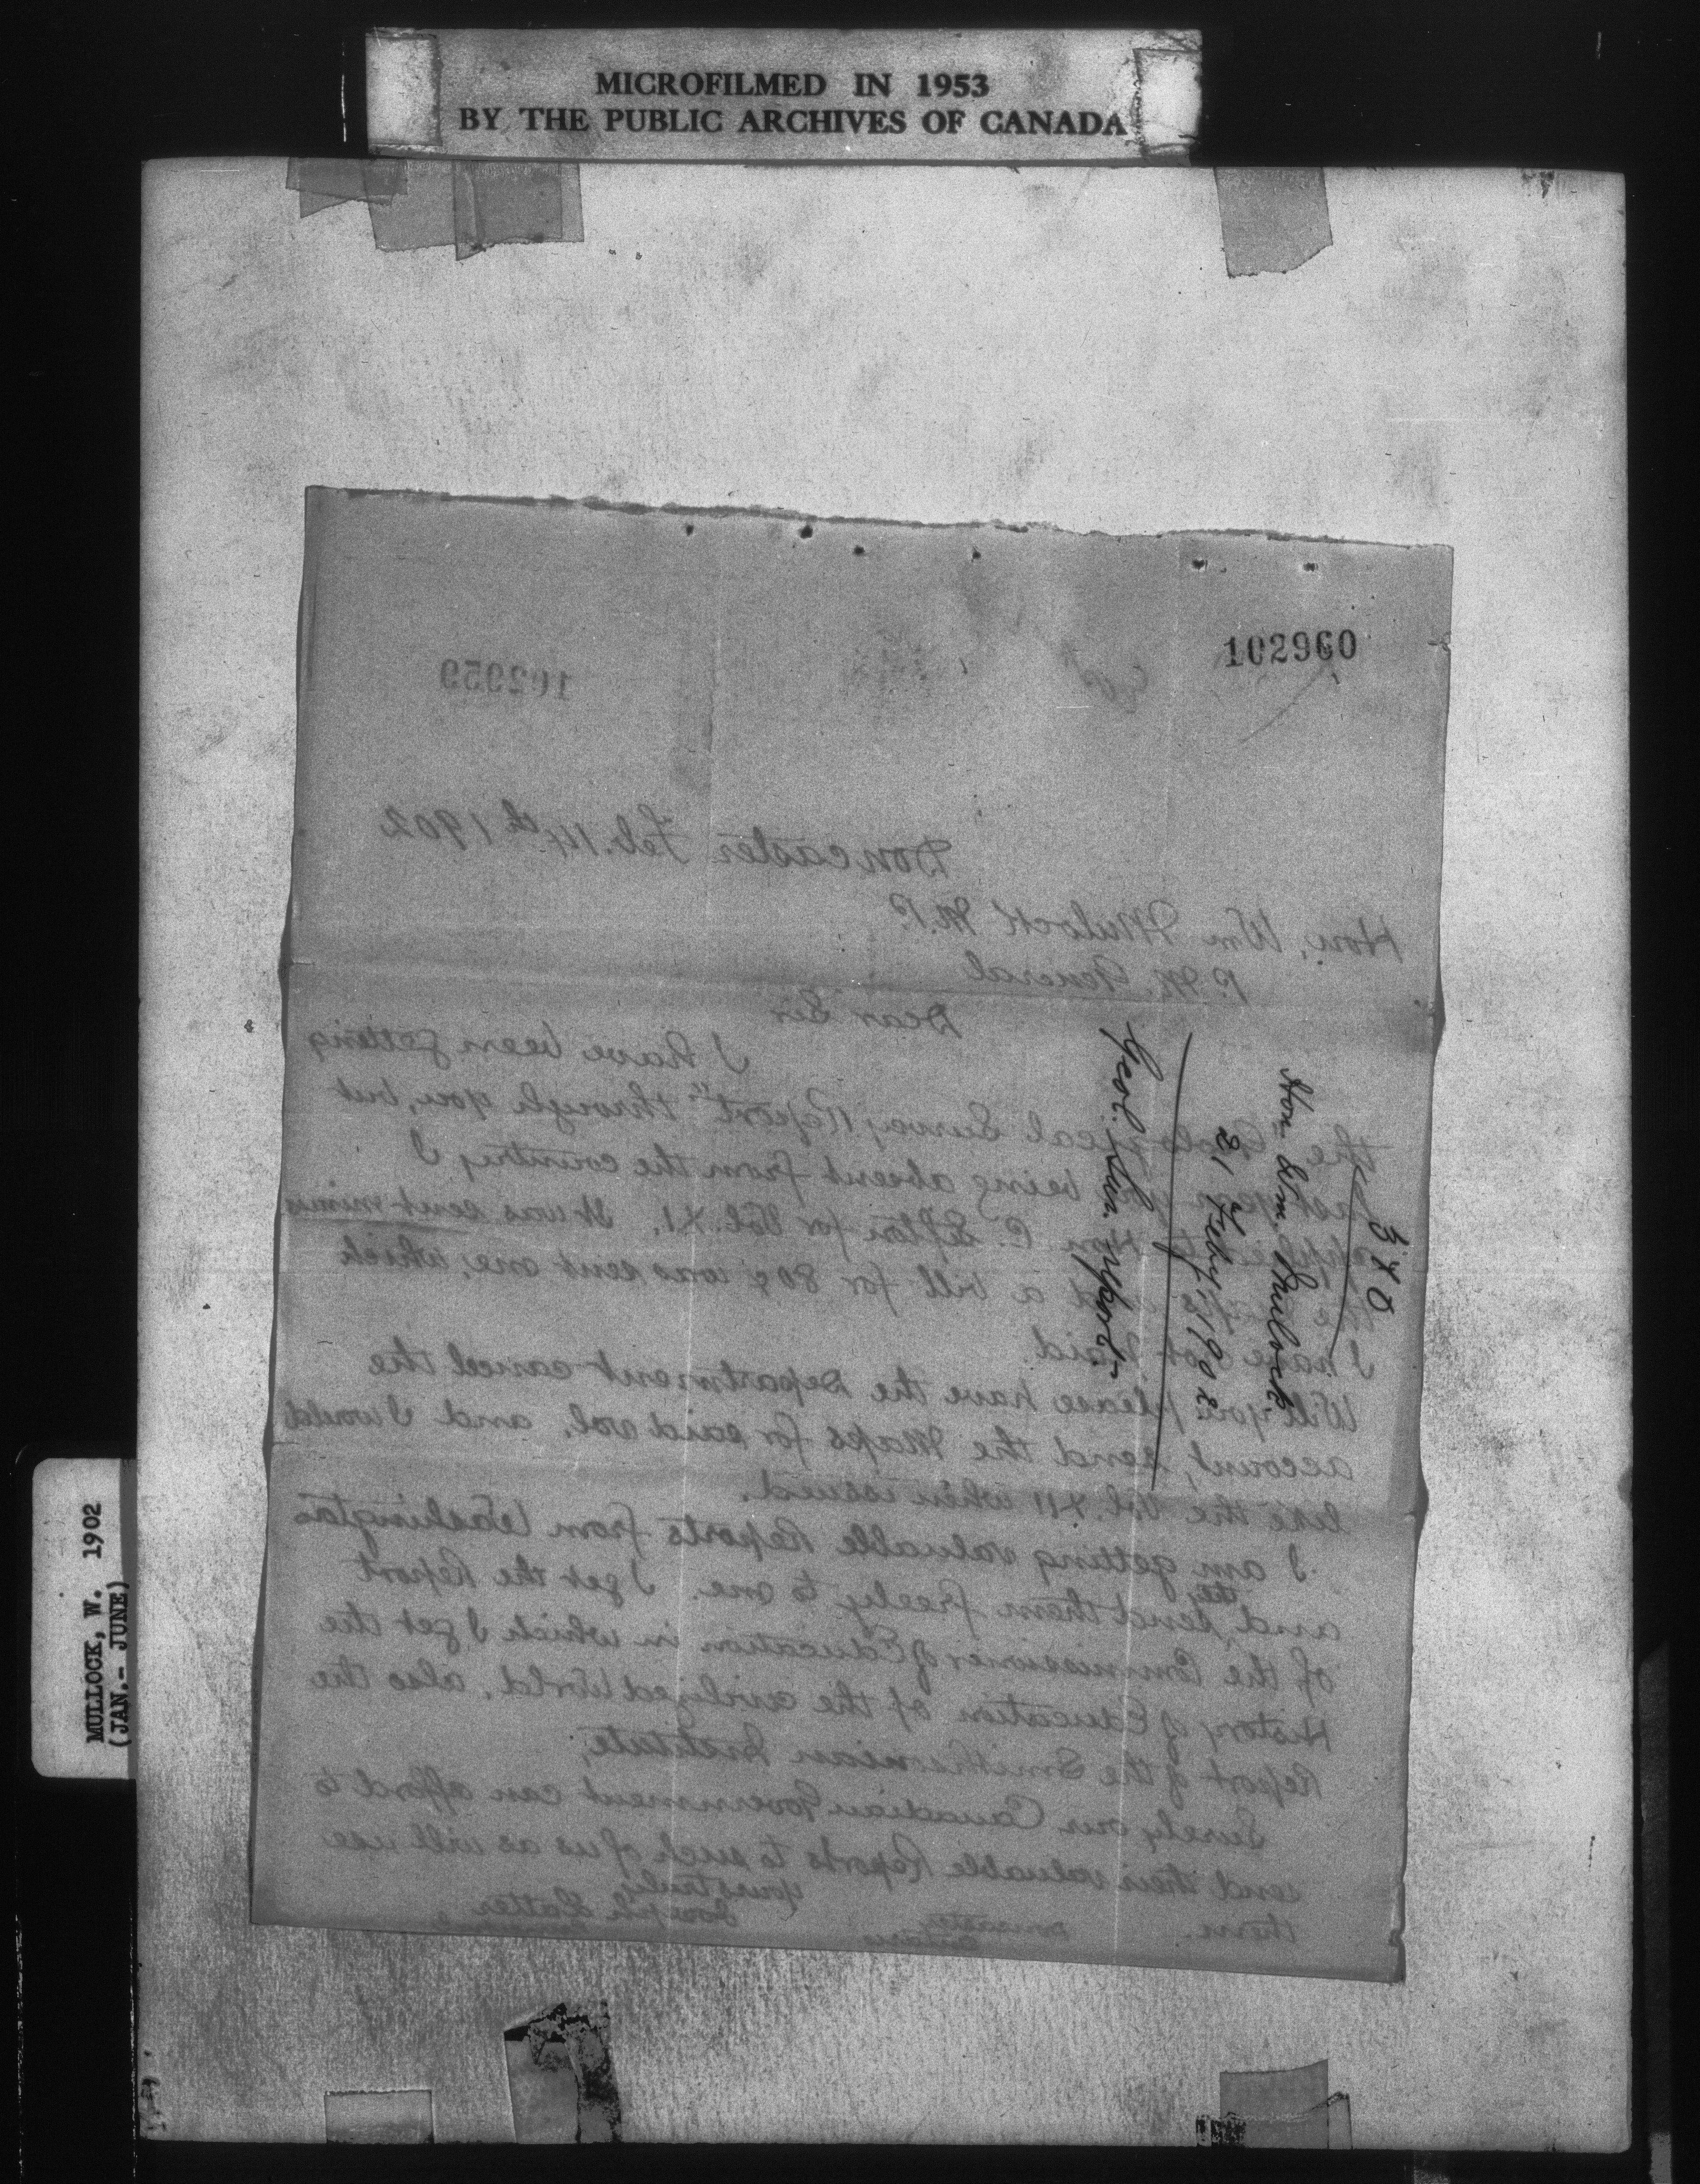 MICROFILMED IN 1953
BY THE PUBLIC ARCHIVES OF CANADA
102960
102959
Doncaster Feb. 14th 1902
Hon. Wm Mulock M.P.
P. M. General
Dear Sir
I have been getting
the "Geological Survey Report" through you, but
last year you being absent from the country I
applied to Hon. C. Sifton for Vol. XI. It was sent minus
the maps and a bill for 80¢ was sent me, which
I have not paid.
Will you please have the Department cancel the
account, send the Maps for said vol. and I would
like the Vol. XII when issued.
I am getting valuable Reports from Washington
and they send them freely to me. I get the Report
of the Commissioner of Education in which I get the
History of Education of the civilized World, also the
Report of the Smithsonian Institute,
Surely our Canadian Government can afford to
send their valuable Reports to such of us as will use
them.
Yours truly
Joseph
580
Hon. Wm. Mulock.
21 Feby, 1902
Geol. Sur. report
MULLOCK, W. 1902
(JAN.- JUNE)